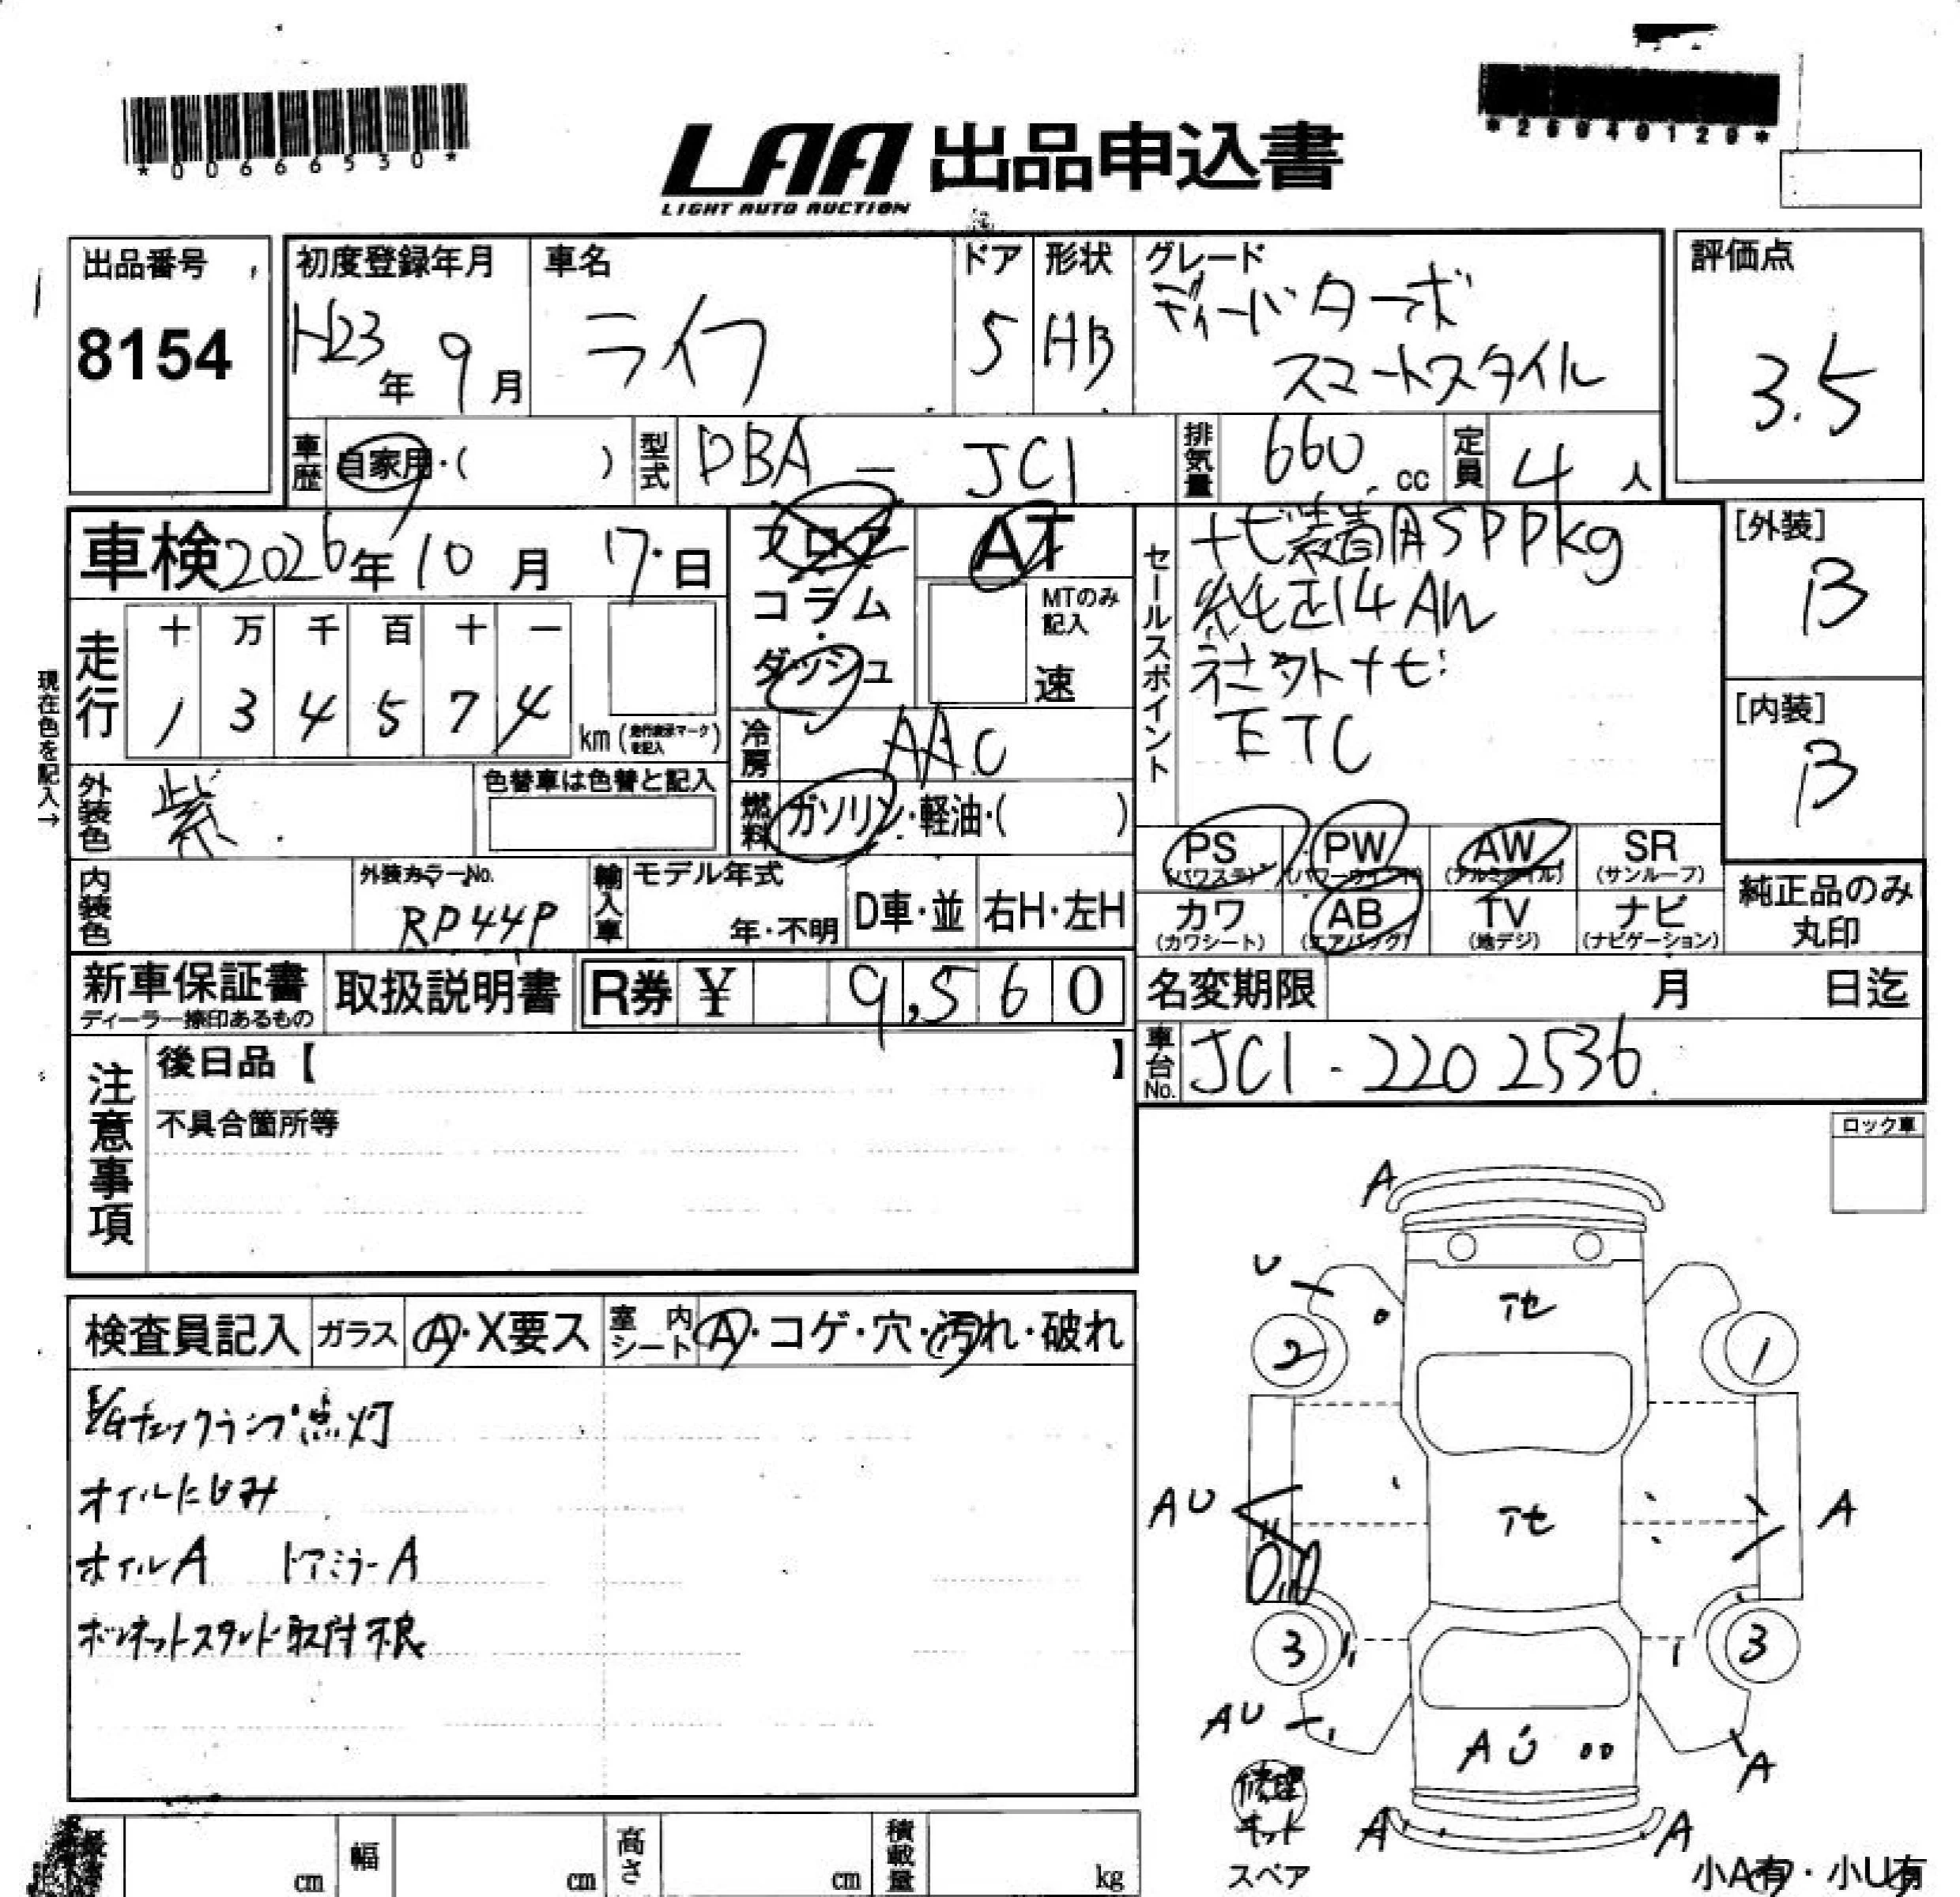 *00666530*
*26940120*
LAA 出品申込書
LIGHT AUTO AUCTION
出品番号
8154
初度登録年月
H23年 9月
車名
ライフ
ドア
5
形状
HB
グレード
ディーバターボ
スマートスタイル
評価点
3.5
車歴 自家用・( )
型式 DBA - JC1
排気量 660 cc
定員 4 人
車検 2026年 10月 17日
フロア
コラム
・
ダッシュ
AT
MTのみ記入
速
セールスポイント
ナビ装着用SPPkg
純正14AW
社外ナビ
ETC
[外装]
B
[内装]
B
現在色を記入→
走行
十 万 千 百 十 一
1 3 4 5 7 4 km (走行表示マークを記入)
冷房 AAC
燃料 ガソリン・軽油・( )
外装色 紫
色替車は色替と記入
内装色
外装カラーNo.
RP44P
輸入車
モデル年式
年・不明
D車・並
右H・左H
PS (パワステ)
PW (パワーウインド)
AW (アルミホイル)
SR (サンルーフ)
カワ (カワシート)
AB (エアバック)
TV (地デジ)
ナビ (ナビゲーション)
純正品のみ
丸印
新車保証書
ディーラー捺印あるもの
取扱説明書
R券 ¥ 9,560
名変期限 月 日迄
車台No. JC1-2202536
注意事項
後日品【 】
不具合箇所等
ロック車
検査員記入
ガラス A・X要ス
室内シート A・コゲ・穴・汚れ・破れ
E/Gチェックランプ点灯
オイルにじみ
ホイルA ドアミラーA
ボンネットスタンド取付不良
A
U
2
1
AU
A
3
3
AU
AU
A
A
A
修理
キット
スペア
小A有・小U有
幅
cm
cm
高さ
cm
積載量
kg